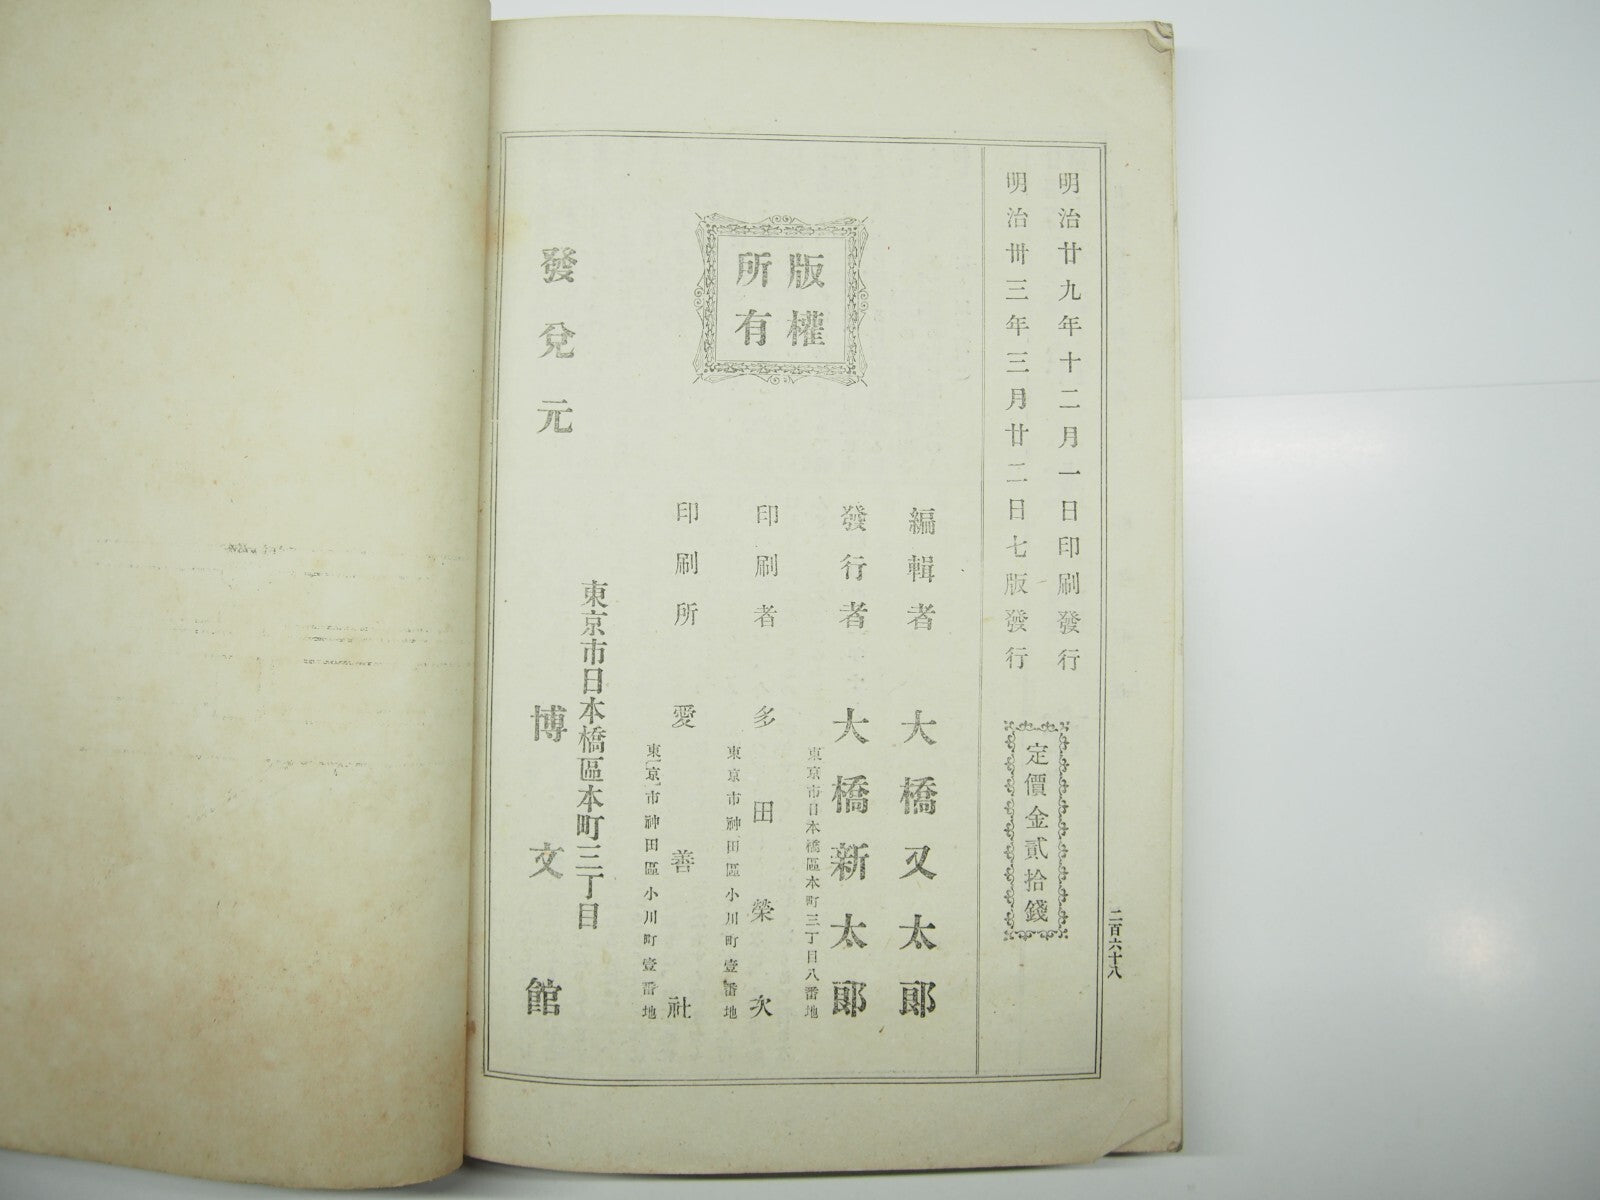 明治廿九年十二月一日印刷發行
明治卅三年三月廿二日七版發行
定價金貳拾錢
二百六十八
編輯者 大橋又太郎
發行者 大橋新太郎
東京市日本橋區本町三丁目八番地
印刷者 多田榮次
東京市神田區小川町壹番地
印刷所 愛善社
東京市神田區小川町壹番地
版權
所有
東京市日本橋區本町三丁目
發兌元 博文館